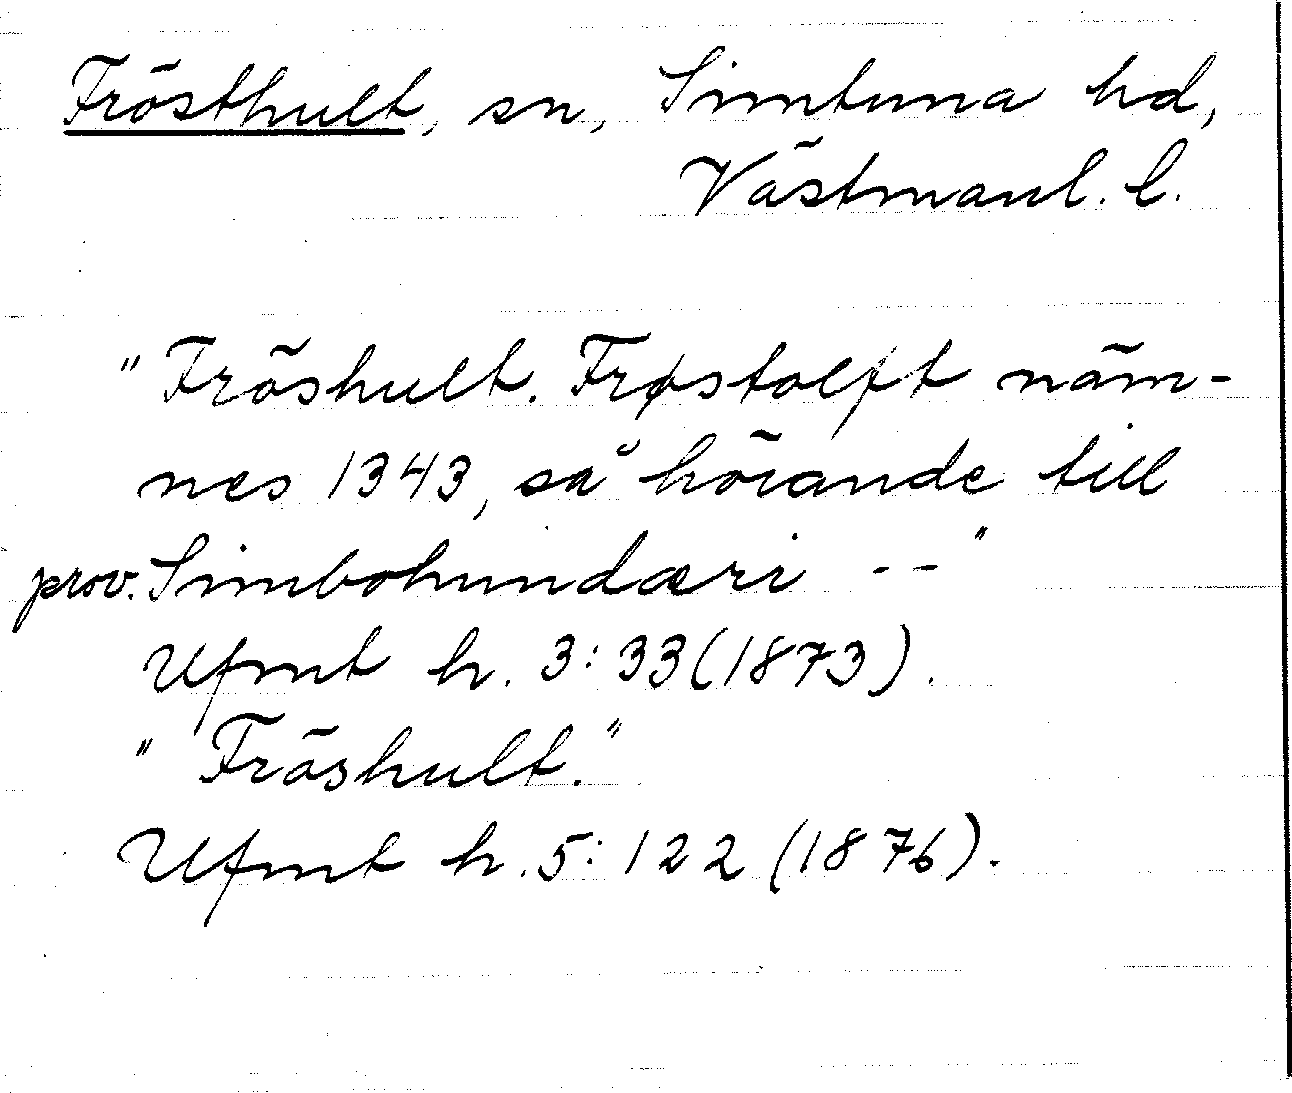 Frösthult, sn, Simtuna hd,
Västmanl. l.
"Fröshult. Frøstolft näm-
nes 1343, så hörande till
prov. Simbohundæri - - "
Ufmt h. 3:33 (1873).
"Fröshult."
Ufmt h. 5:122 (1876).